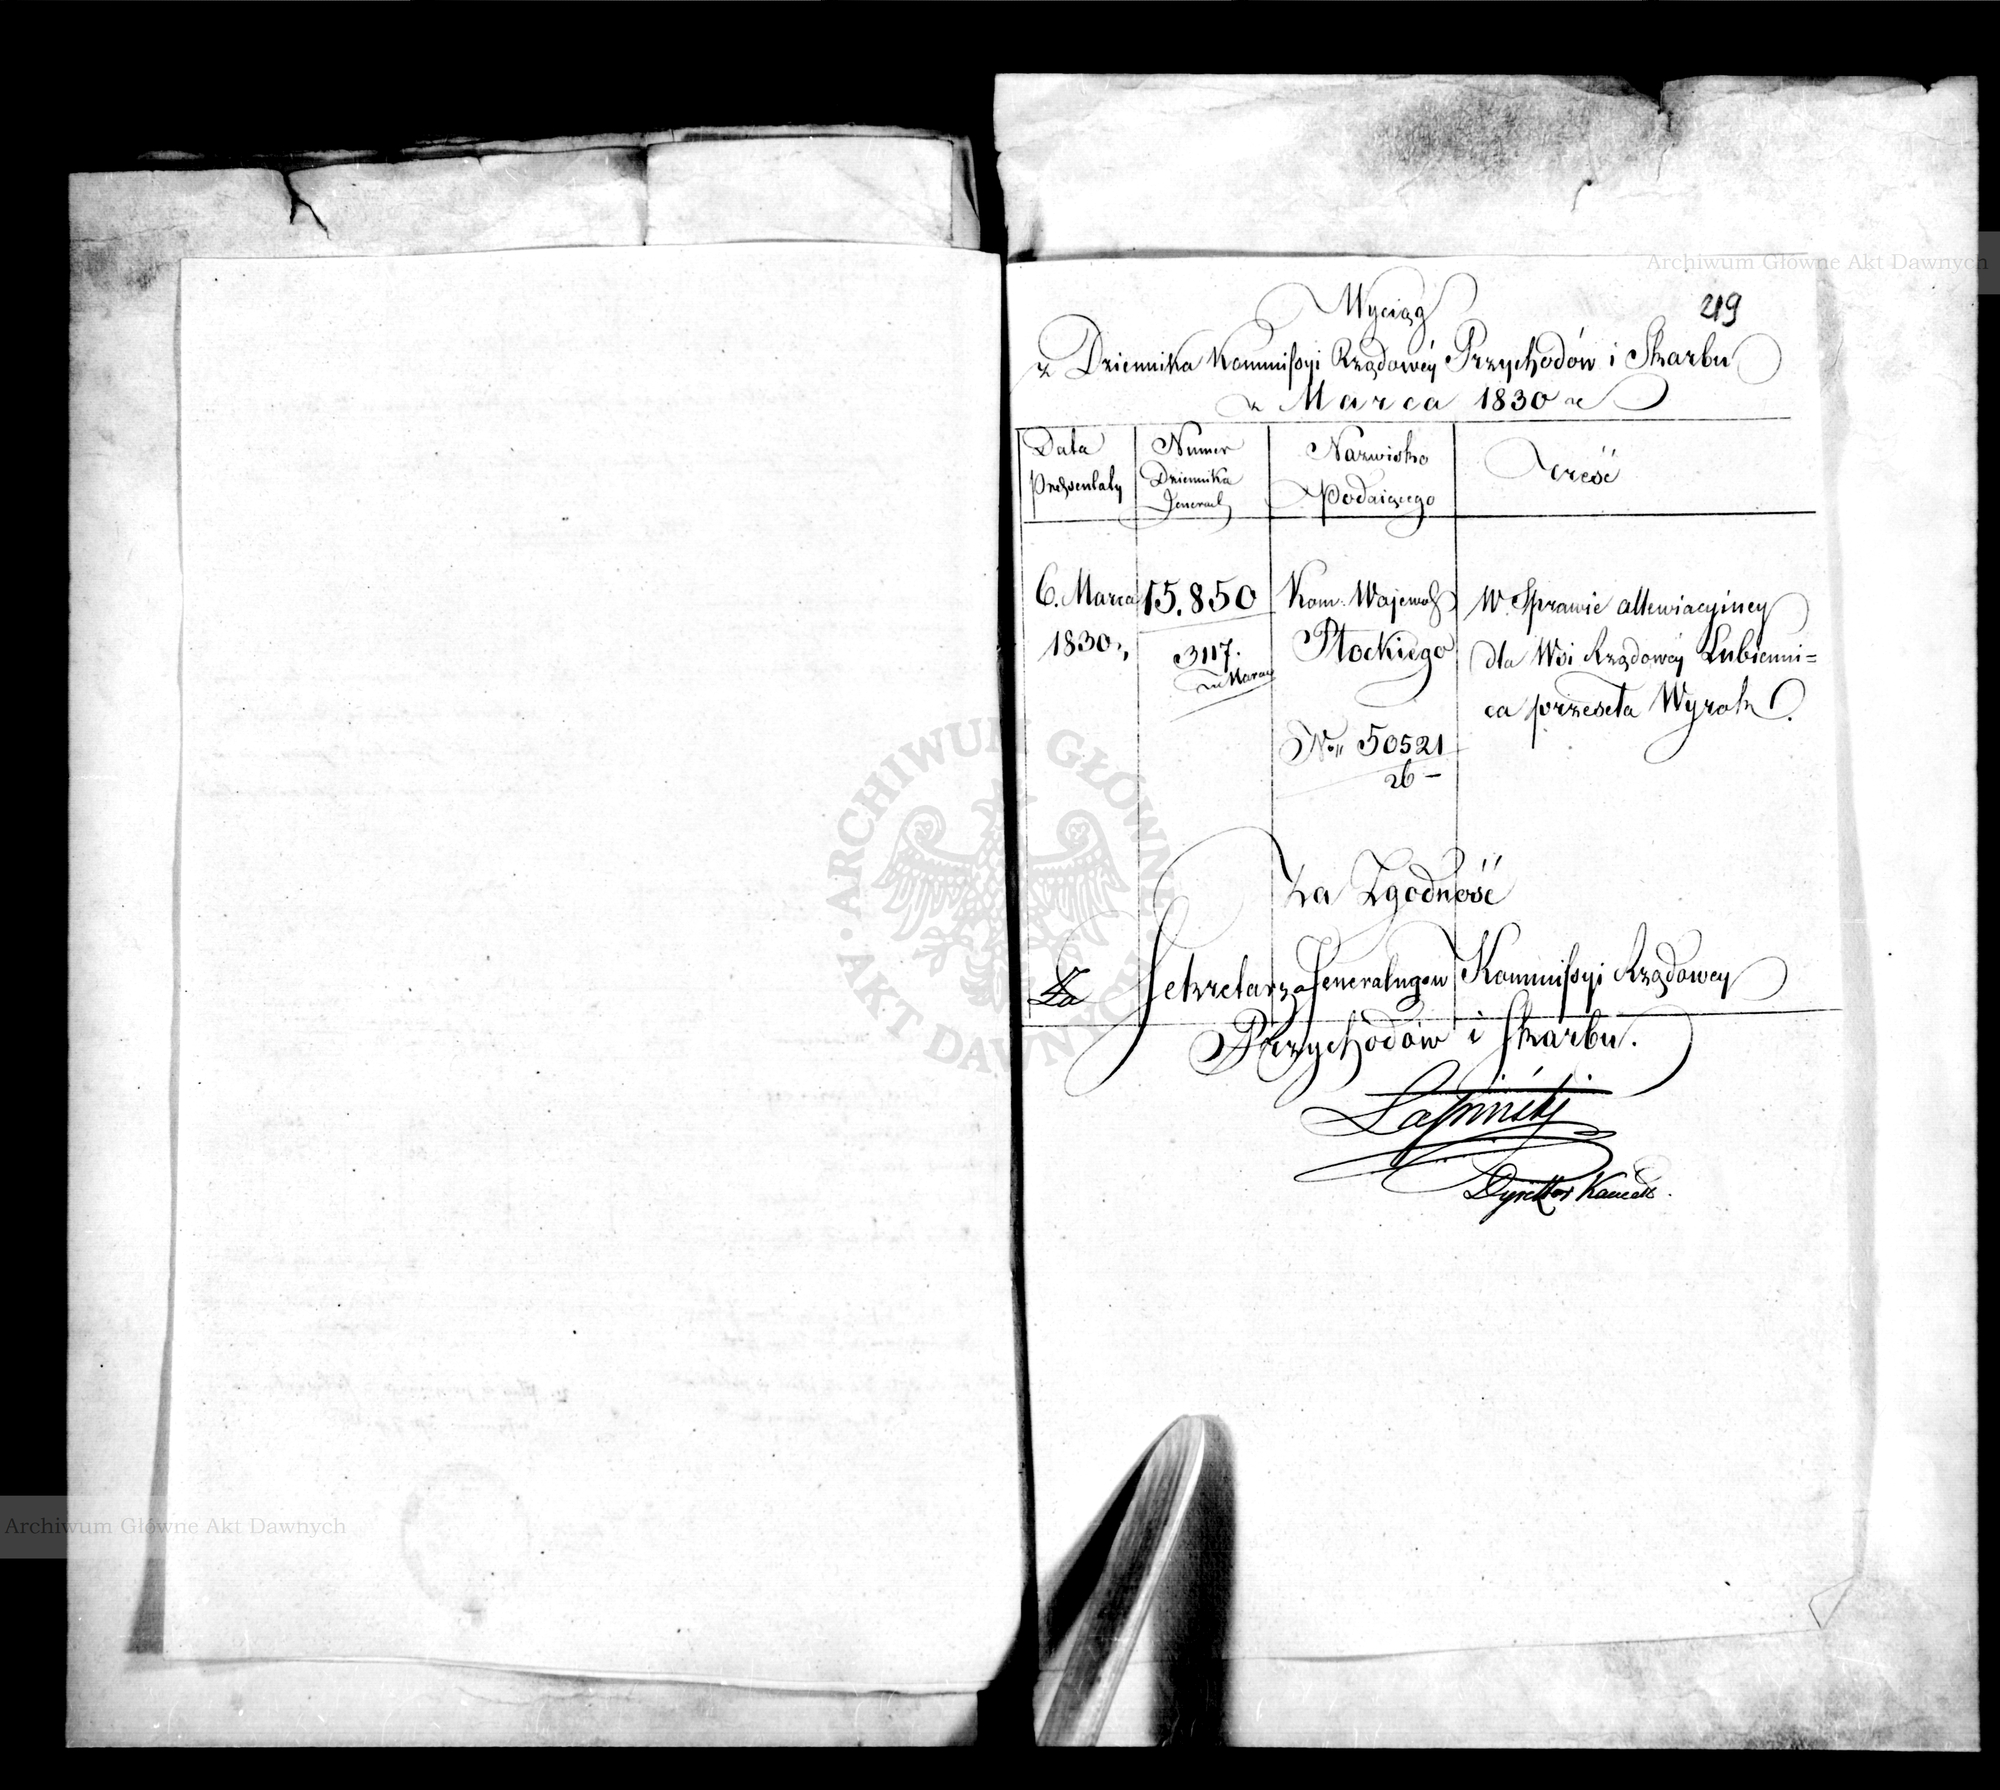 Archiwum Główne Akt Dawnych
219
Wyciąg
z Dziennika Kommissyi Rządowéy Przychodów i Skarbu
z Marca 1830 r.
Data
Prezentaty
Numer
Dziennika
Jeneral.
Nazwisko
Podaiącego
Treść
6. Marca
1830 r.
15.850
3117.
Kom. Wojewó.
Płockiego
No. 50521
26
W Sprawie allewiacyiney
dla Wsi Rządowéy Lubienni=
ca przeseła Wyrok.
Za Zgodność
Za Sekretarza Jeneralnego Kommissyi Rządowey
Przychodów i Skarbu.
Dyrektor Kancel.
ARCHIWUM GŁÓWNE AKT DAWNYCH
Archiwum Główne Akt Dawnych